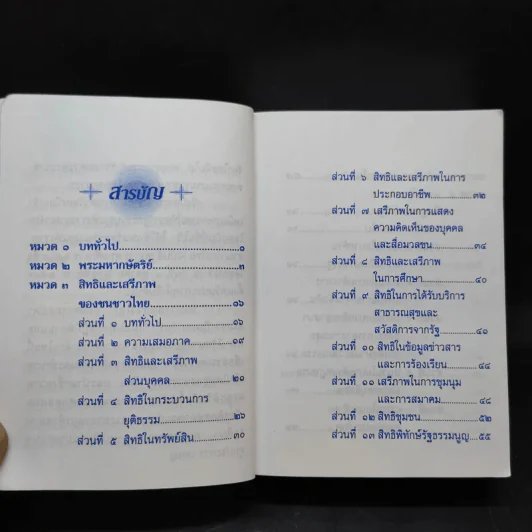 สารบัญ
หมวด ๑ บททั่วไป.....................................๑
หมวด ๒ พระมหากษัตริย์...........................๓
หมวด ๓ สิทธิและเสรีภาพ
ของชนชาวไทย............................๑๖
ส่วนที่ ๑ บททั่วไป........................๑๖
ส่วนที่ ๒ ความเสมอภาค................๑๙
ส่วนที่ ๓ สิทธิและเสรีภาพ
ส่วนบุคคล.......................๒๑
ส่วนที่ ๔ สิทธิในกระบวนการ
ยุติธรรม..........................๒๖
ส่วนที่ ๕ สิทธิในทรัพย์สิน..............๓๐
ส่วนที่ ๖ สิทธิและเสรีภาพในการ
ประกอบอาชีพ................๓๒
ส่วนที่ ๗ เสรีภาพในการแสดง
ความคิดเห็นของบุคคล
และสื่อมวลชน................๓๔
ส่วนที่ ๘ สิทธิและเสรีภาพ
ในการศึกษา....................๔๐
ส่วนที่ ๙ สิทธิในการได้รับบริการ
สาธารณสุขและ
สวัสดิการจากรัฐ..............๔๑
ส่วนที่ ๑๐ สิทธิในข้อมูลข่าวสาร
และการร้องเรียน..............๔๔
ส่วนที่ ๑๑ เสรีภาพในการชุมนุม
และการสมาคม................๔๘
ส่วนที่ ๑๒ สิทธิชุมชน......................๕๒
ส่วนที่ ๑๓ สิทธิพิทักษ์รัฐธรรมนูญ.....๕๕